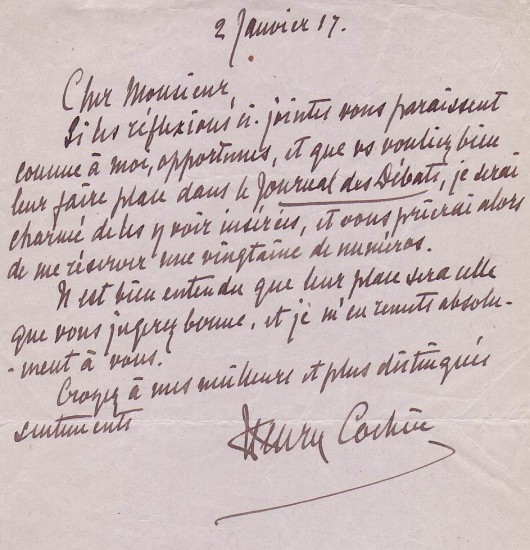 2 Janvier 17.
Cher Monsieur
Si les réflexions ci-jointes vous paraissent
comme à moi, opportunes, et que vs vouliez bien
leur faire place dans le Journal des Débats, je serai
charmé de les y voir insérées, et vous prierai alors
de me réserver une vingtaine de numéros.
Il est bien entendu que leur place sera celle
que vous jugerez bonne, et je m'en remets absolu-
-ment à vous.
Croyez à mes meilleurs et plus distingués
sentiments
Henry Cochin